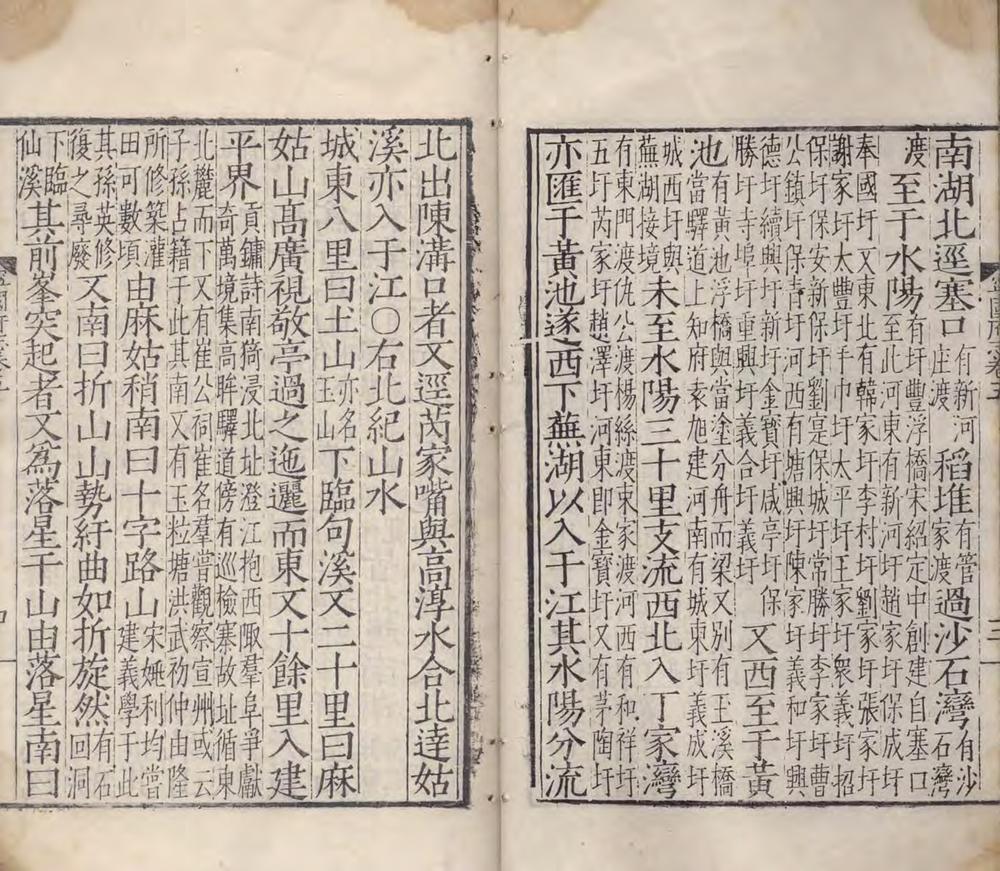 南湖北逕塞口有新河庄渡稻堆有管家渡過沙石灣有沙石灣
渡至于水陽有圩豐浮橋宋紹定中創建自塞口至此河東有新河圩趙家圩保成圩
奉國圩又東北有韓家圩李村圩劉家圩張家圩
謝家圩太豐圩手巾圩太平圩王家圩衆義圩招
保圩保安新保圩劉是保城圩常勝圩李家圩曹
公鎮圩保青圩河西有塘興圩陳家圩義和圩興
德圩續興圩新圩金寳圩咸亭圩保勝圩寺埠圩重興圩義合圩義圩又西至于黃
池有黄池浮橋與當塗分舟而梁又别有玉溪橋當驛道上知府袁旭建河南有城東圩義成圩
城西圩與蕪湖接境未至水陽三十里支流西北入丁家灣
有東門渡仇公渡楊絲渡束家渡河西有和祥圩
五圩芮家圩趙澤圩河東即金寳圩又有茅陶圩
亦匯于黃池遂西下蕪湖以入于江其水陽分流
北出陳溝口者又逕芮家嘴與高淳水合北逹姑
溪亦入于江〇右北紀山水
城東八里曰土山亦名玉山下臨句溪又二十里曰麻
姑山高廣視敬亭過之迤邐而東又十餘里入建
平界貢鏞詩南猗浸北址澄江抱西陬羣阜爭獻奇萬境集高眸驛道傍有巡檢寨故址循東
北麓而下又有崔公祠崔名羣嘗觀察宣州或云
子孫占籍于此其南又有玉粒塘洪武初仲由隆
所修築灌田可數頃由麻姑稍南曰十字路山宋姚利均嘗建義學于此
其孫英修復之尋廢又南曰折山山勢紆曲如折旋然有石回洞
下臨仙溪其前峯突起者又爲落星干山由落星南曰